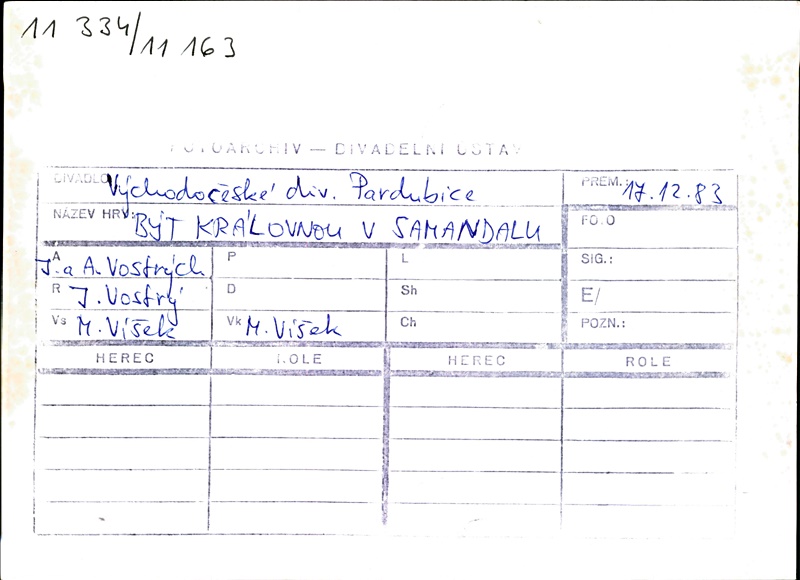 11 334/11 163
FOTOARCHIV — DIVADELNÍ ÚSTAV
DIVADLO Východočeské div. Pardubice PREM.: 17.12.83
NÁZEV HRY: BÝT KRÁLOVNOU V SAMANDALU FOTO
A J. a A. Vostrých P L SIG.:
R J. Vostrý D Sh E/
Vs M. Víšek Vk M. Víšek Ch POZN.:
HEREC ROLE HEREC ROLE